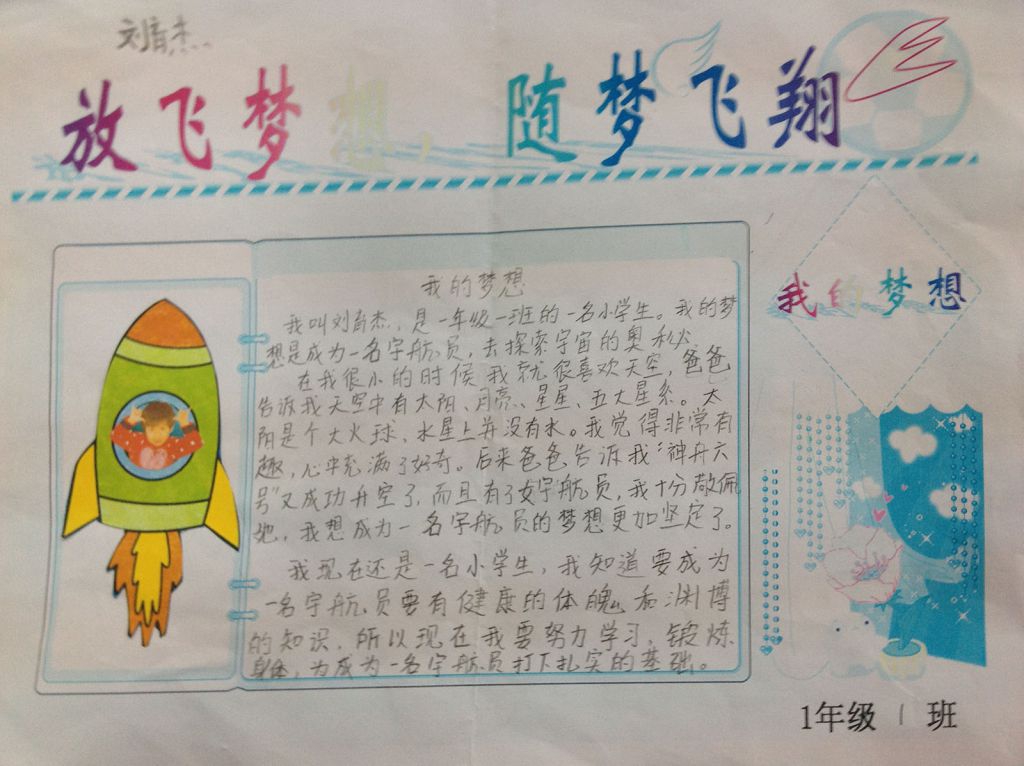 刘育杰
放飞梦想，随梦飞翔
我的梦想
我的梦想
我叫刘育杰，是一年级一班的一名小学生。我的梦
想是成为一名宇航员，去探索宇宙的奥秘。
在我很小的时候我就很喜欢天空，爸爸
告诉我天空中有太阳、月亮、星星、五大星系。太
阳是个大火球，水星上并没有水。我觉得非常有
趣，心中充满了好奇。后来爸爸告诉我“神舟六
号”又成功升空了，而且有了女宇航员，我十分敬佩
她，我想成为一名宇航员的梦想更加坚定了。
我现在还是一名小学生，我知道要成为
一名宇航员要有健康的体魄和渊博
的知识，所以现在我要努力学习，锻炼
身体，为成为一名宇航员打下扎实的基础。
1年级 1 班